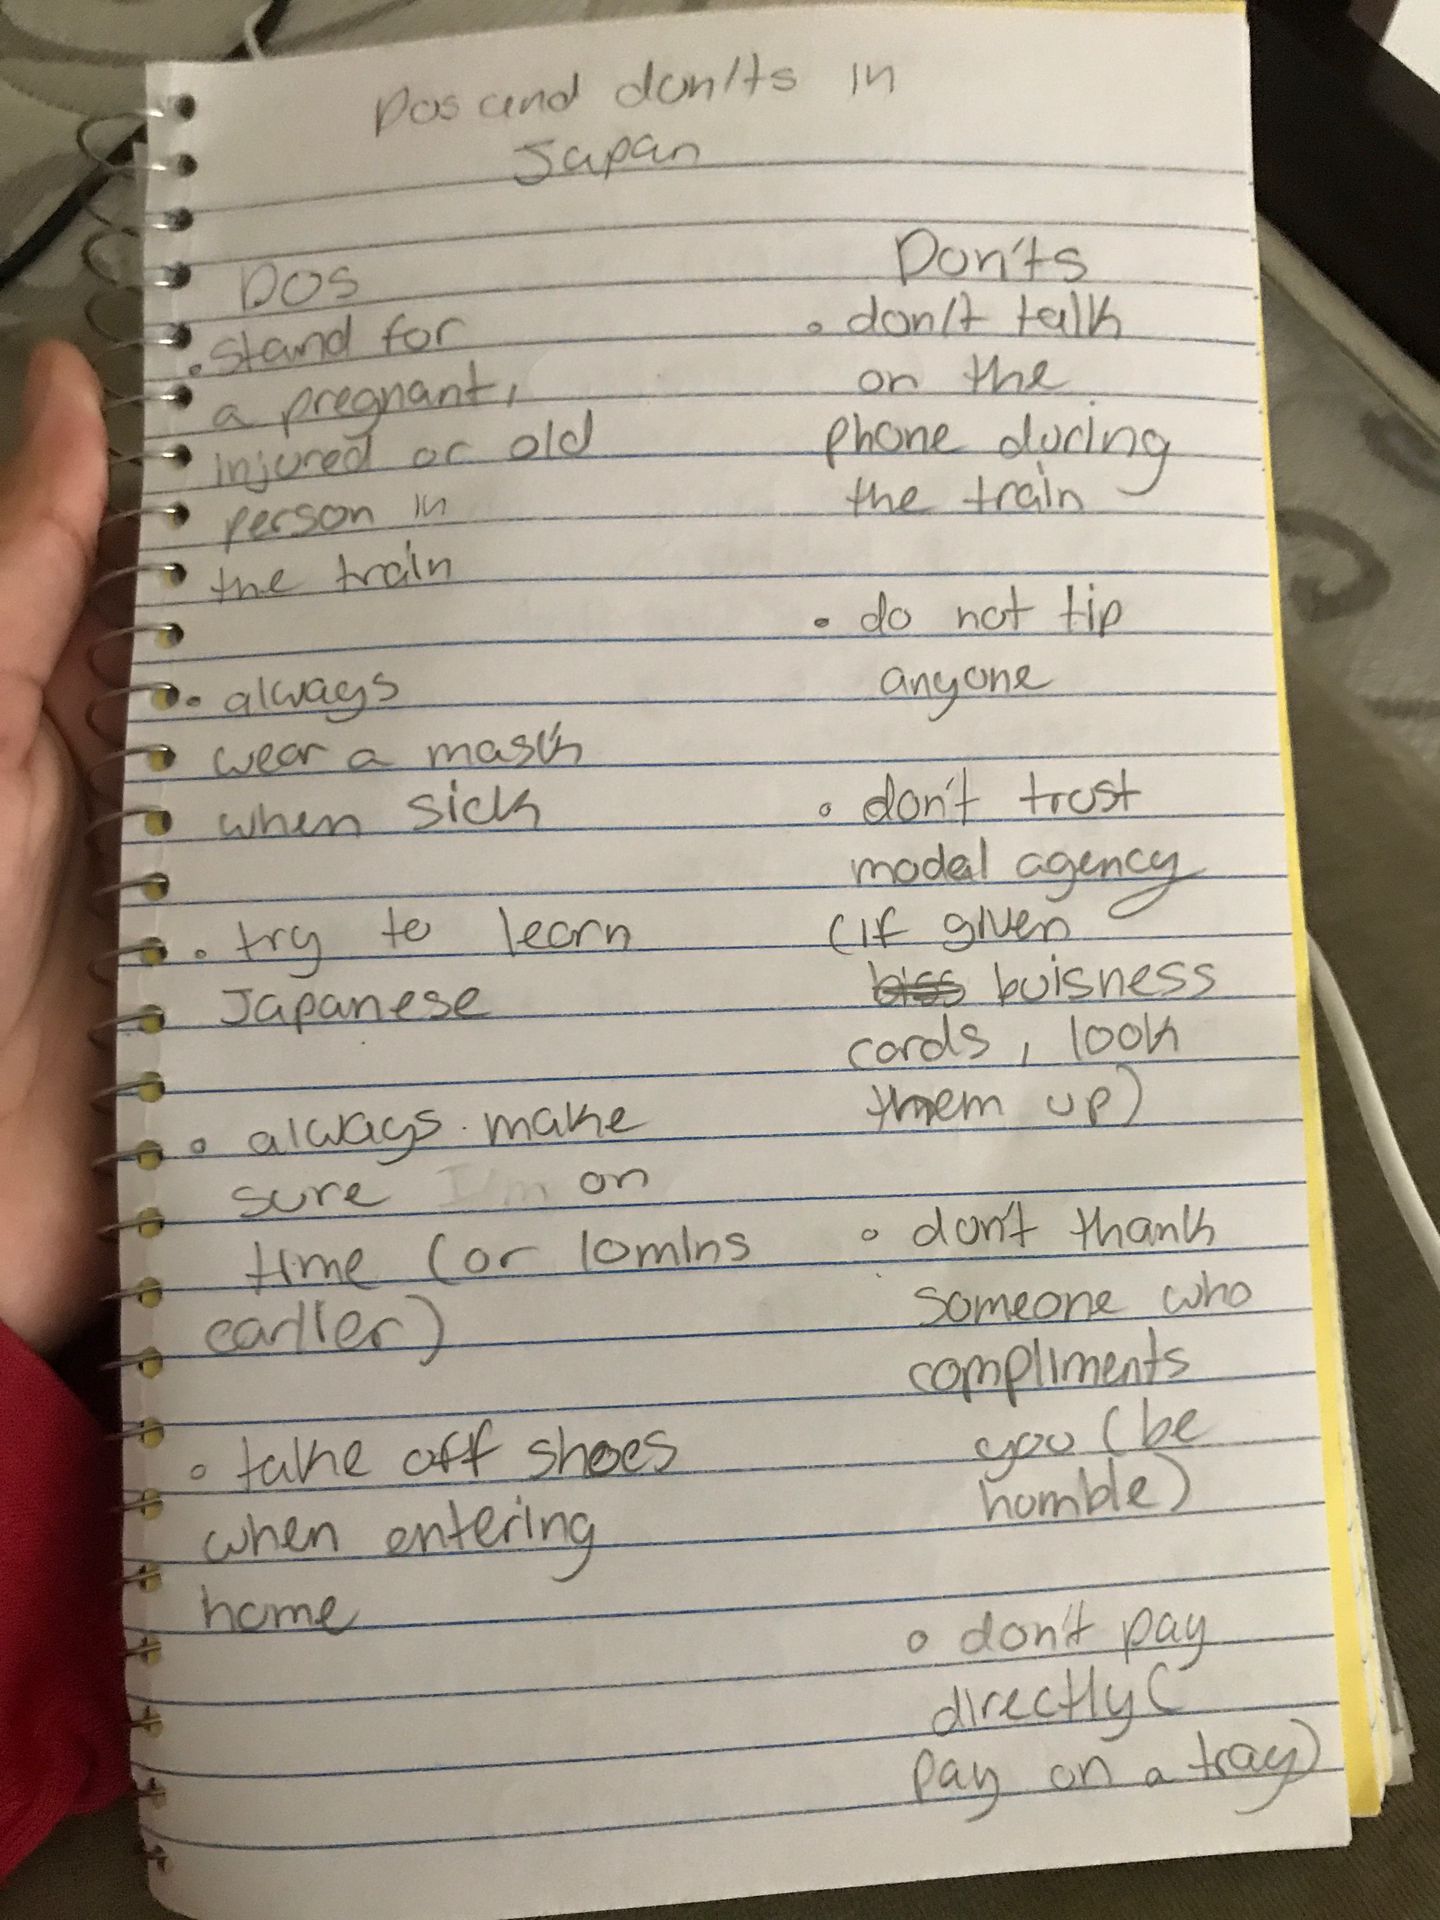 Dos and don'ts in
Japan
Dos
• stand for
a pregnant,
injured or old
person in
the train
• always
wear a mask
when sick
• try to learn
Japanese
• always make
sure I'm on
time (or 10mins
earlier)
• take off shoes
when entering
home
Don'ts
• don't talk
on the
phone during
the train
• do not tip
anyone
• don't trust
model agency
(if given
buisness
cards, look
them up)
• don't thank
someone who
compliments
you (be
humble)
• don't pay
directly (
pay on a tray)